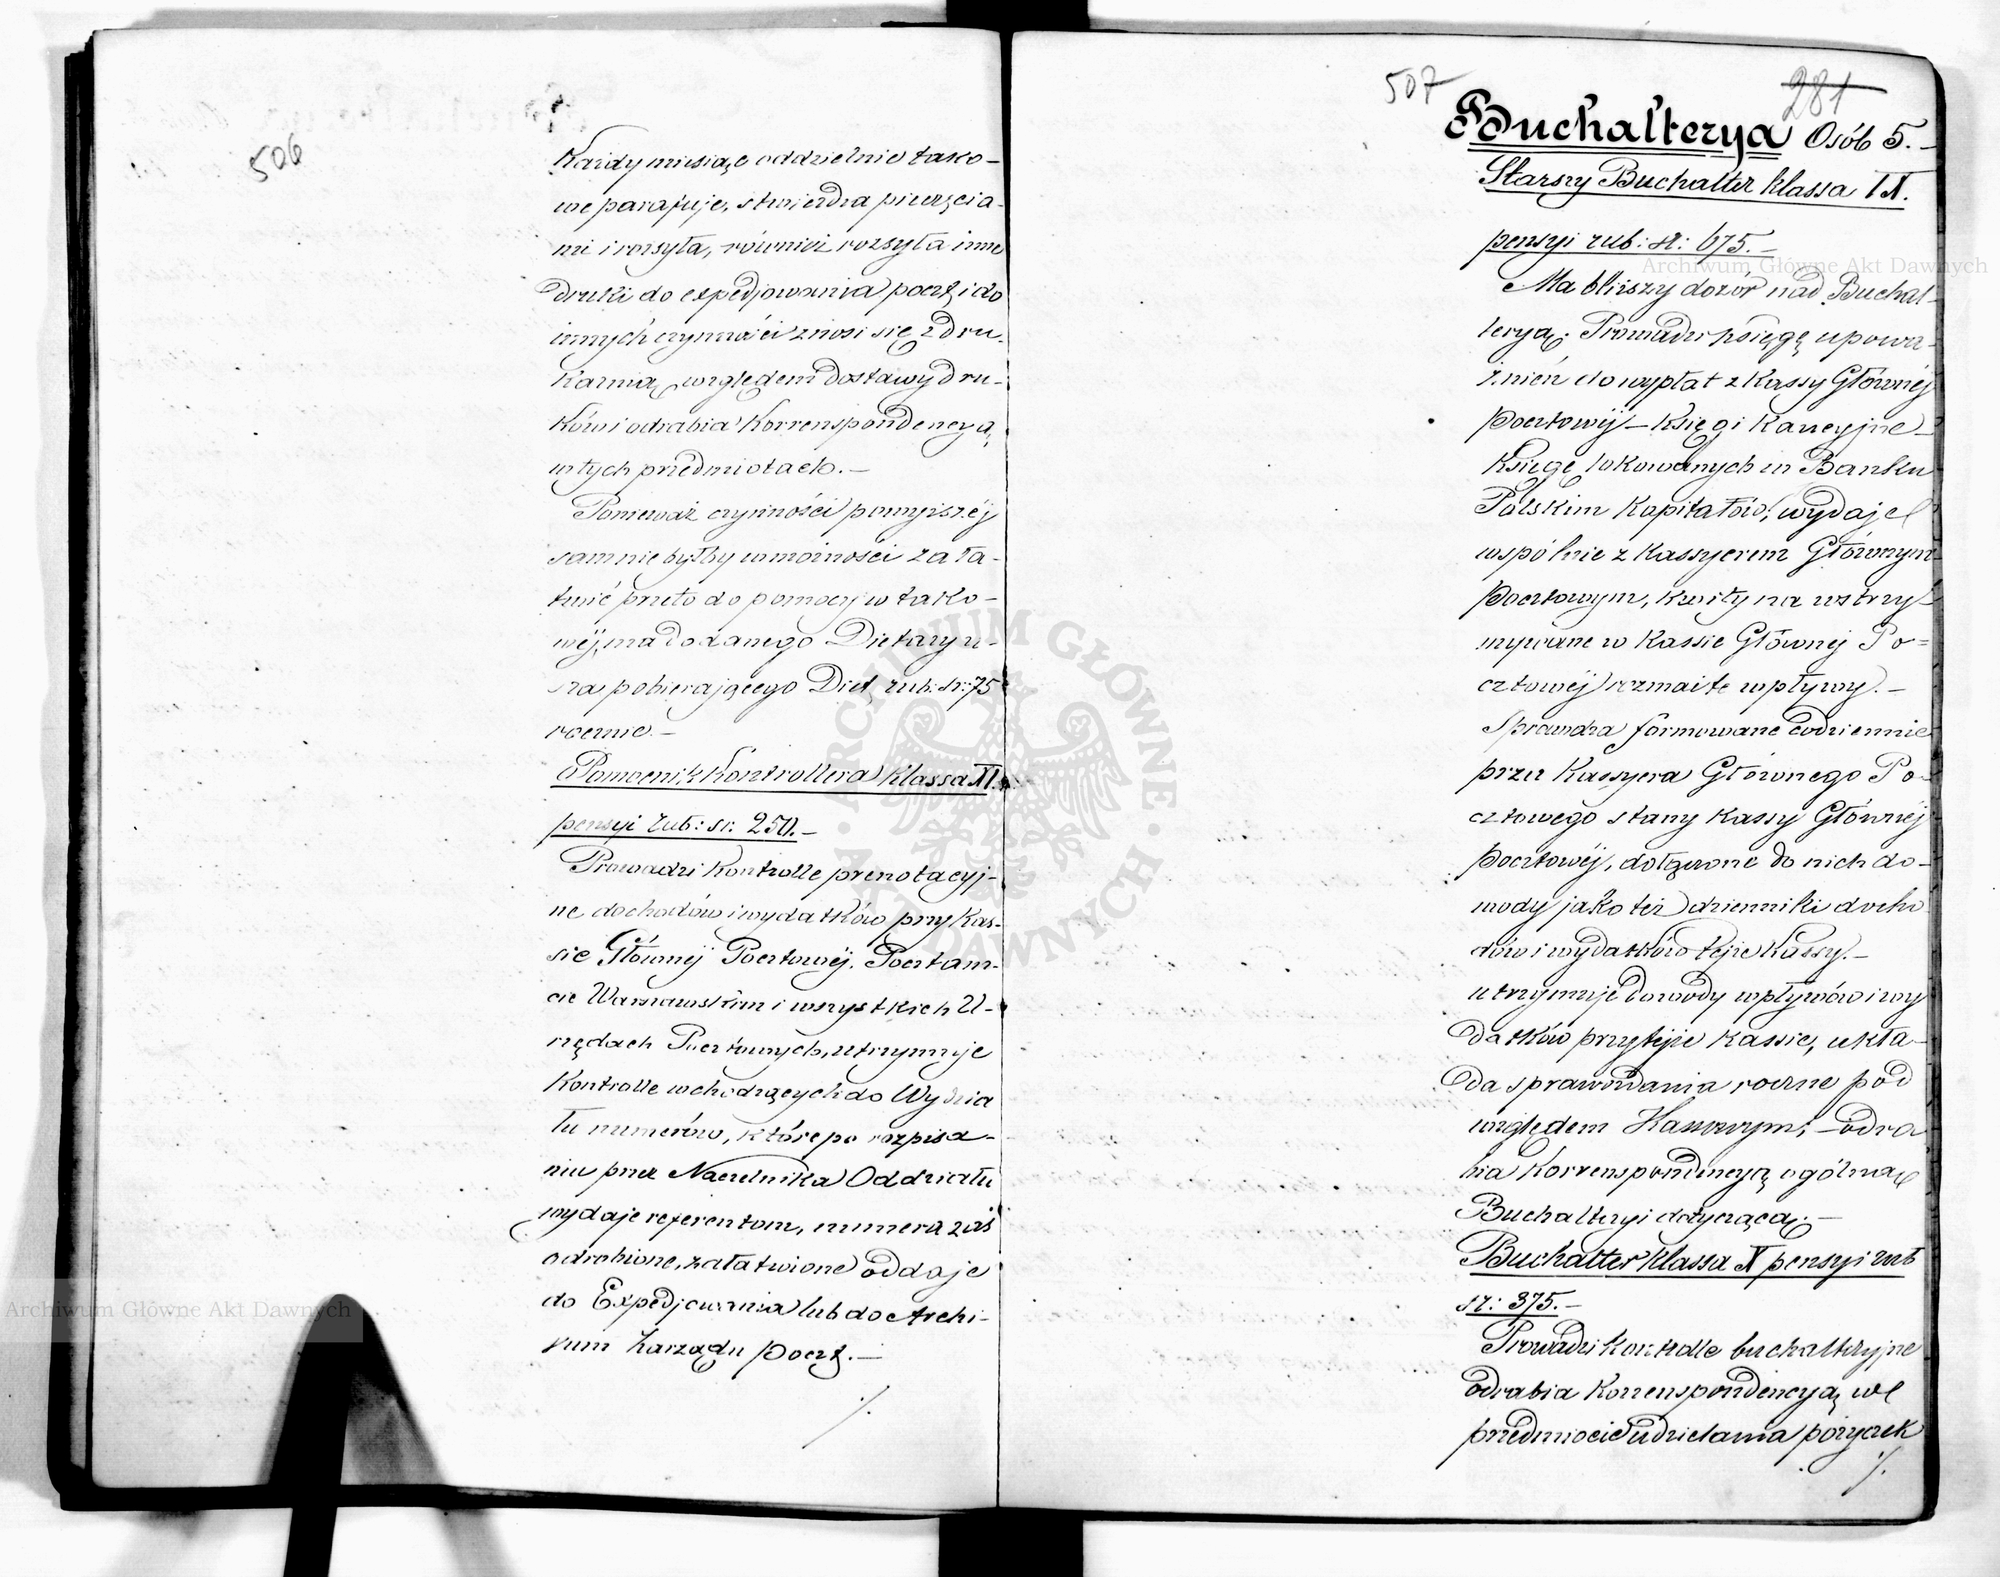 506
Każdy miesiąc oddzielnie tako-
we parafuje, stwierdza pieczęcia-
mi i rozsyła, również rozsyła inne
druki do expedjowania poczt i do
innych czynności znosi się z dru-
karnią względem dostawy dru-
ków i odrabia Korrespondencyą,
w tych przedmiotach. —
Ponieważ czynności powyższéj
sam nie byłby w możności zała-
twić przeto do pomocy w tako-
wéj, ma dodanego Dietaryu-
sza pobierającego Diet, rub: sr: 75
rocznie. —
Pomocnik Kontrollera Klassa XI.
pensyi rub: sr: 250. —
Prowadzi Kontrolle prenotacyj-
ne dochodów i wydatków przy Kas-
sie Głównéj Pocztowéj, Pocztam-
cie Warszawskim i wszystkich U-
rzędach Pocztowych, utrzymuje
Kontrolle wchodzących do Wydzia
łu numerów, które po rozpisa-
niu przez Naczelnika Oddziału
wydaje referentom, numera zaś
odrobione, załatwione oddaje
do Expedjowania lub do Archi-
wum Zarządu Poczt. —
./.
507
281
Buchalterya Osób 5. —
Starszy Buchalter klassa IX.
pensyi rub: sr: 675. —
Ma bliższy dozór nad Buchal-
teryą. Prowadzi księgę upowa-
żnień do wypłat z Kassy Głównéj
Pocztowéj — Księgi Kaucyjne —
Księgę lokowanych w Banku
Polskim Kapitałów, wydaje
wspólnie z Kassyerem Głównym
Pocztowym, kwity na wstrzy
mywane w Kassie Głównéj Po=
cztowéj rozmaite wpływy. —
Sprawdza formowane codziennie
przez Kassyera Głównego Po-
cztowego stany Kassy Głównéj
Pocztowéj, dołączone do nich do-
wody jako też dzienniki docho
dów i wydatków téjże Kassy. —
utrzymuje dowody wpływów i wy
datków przy téjże Kassie, ukła-
da sprawozdania roczne pod
względem Kassowym; — odra
bia Korrespondencyą ogólną
Buchalteryi dotyczącą. —
Buchalter klassa X pensyi rub
sr: 375. —
Prowadzi kontrolle buchalteryjne
odrabia Korrespondencyą w
przedmiocie udzielania pożyczek
./.
Archiwum Główne Akt Dawnych
Archiwum Główne Akt Dawnych
ARCHIWUM GŁÓWNE AKT DAWNYCH